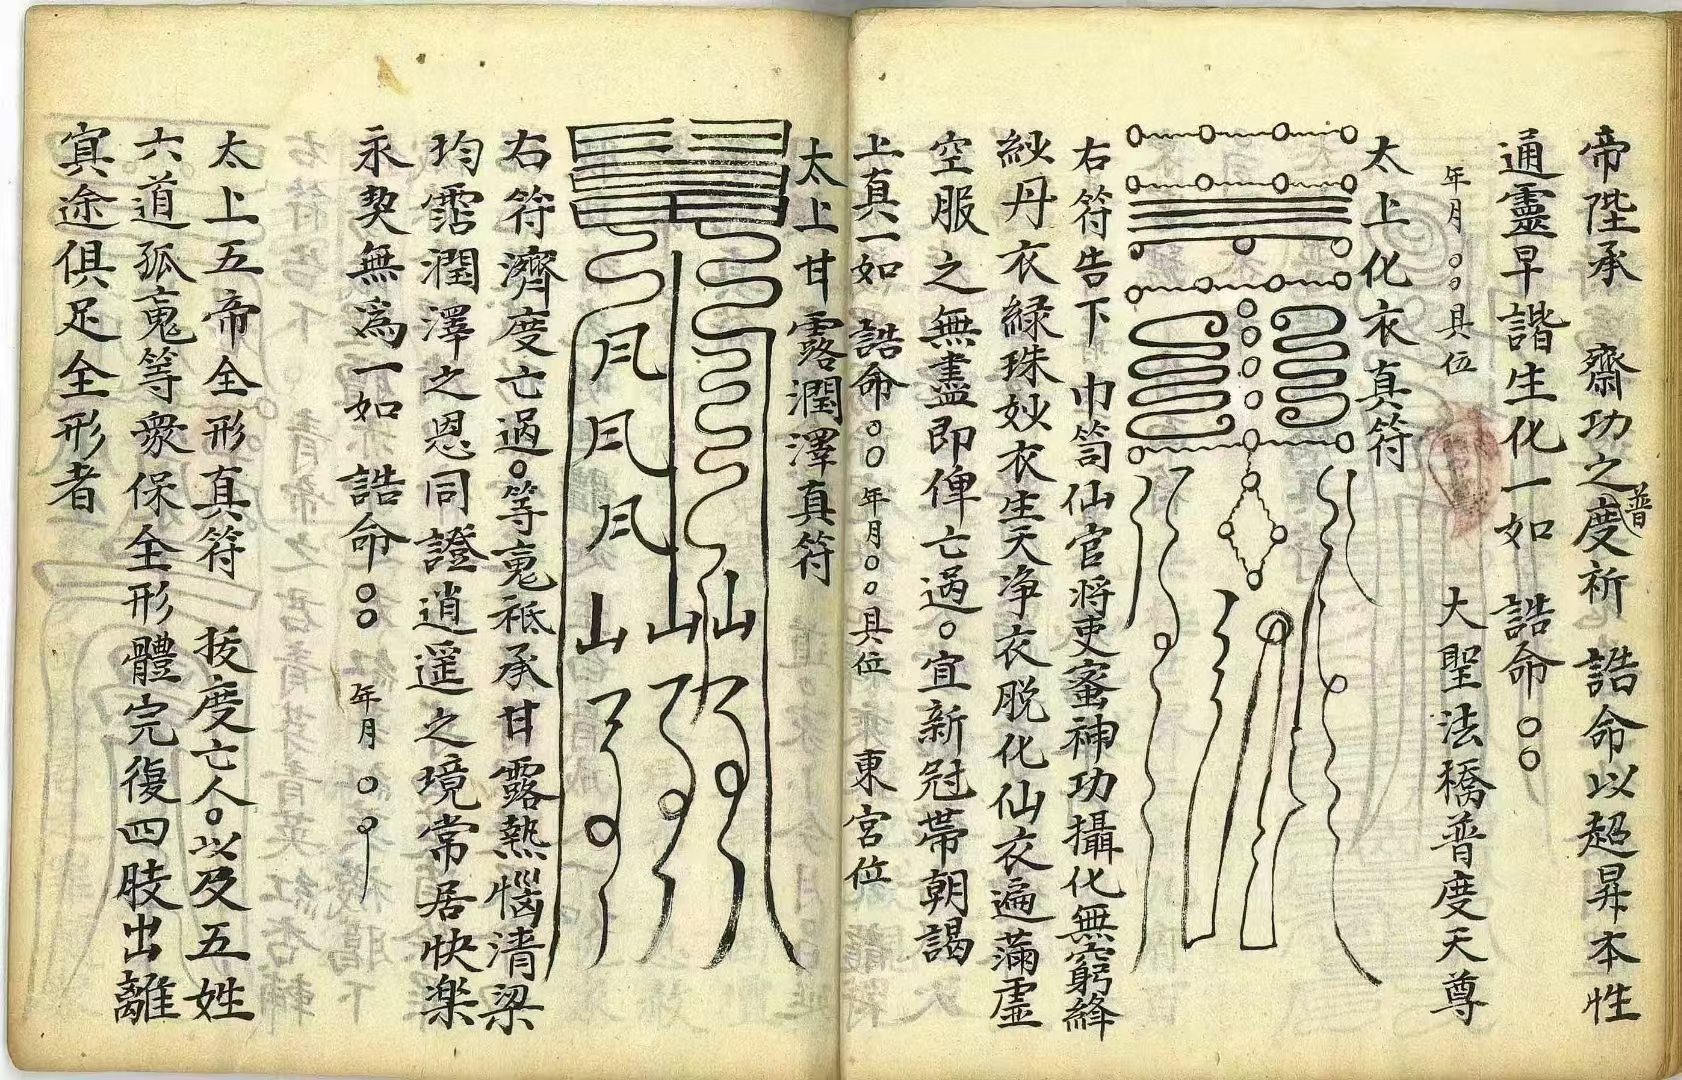 帝陛承　齋功之普度祈　誥命以超昇本性
通靈早諧生化一如　誥命○○
年月○○具位　　大聖法橋普度天尊
太上化衣真符
右符告下　巾笥仙官將吏蜜神功攝化無窮絳
紗丹衣綠珠妙衣生天净衣脱化仙衣遍滿虛
空服之無盡即俾亡過○宜新冠帶朝謁
上真一如　誥命○○　年月○○具位　東宮位
太上甘露潤澤真符
右符濟度亡過○等䰟祗承甘露熱惱清梁
均霑潤澤之恩同證逍遥之境常居快楽
永契無為一如　誥命○○　年月○○
太上五帝全形真符　拔度亡人○以及五姓
六道孤䰟等衆保全形體完復四肢出離
冥途俱足全形者